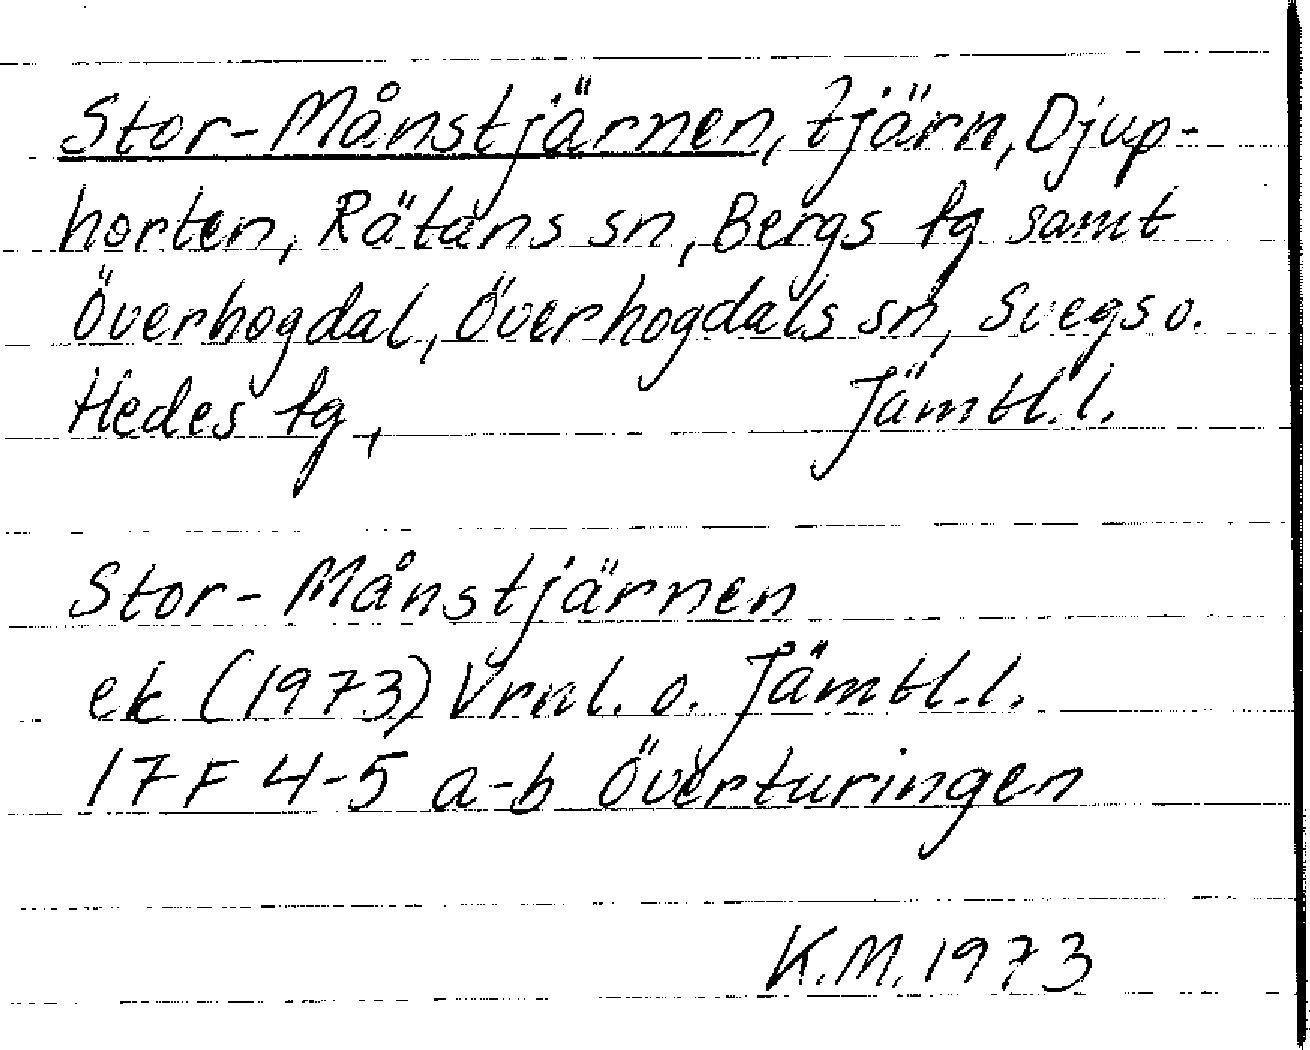 Stor-Månstjärnen, tjärn, Djup-
horten, Rätans sn, Bergs tg samt
Överhogdal, Överhogdals sn, Svegs o.
Hedes tg, Jämtl.l.
Stor-Månstjärnen
ek (1973) Vrnl. o. Jämtl.l.
17F 4-5 a-b Överturingen
K.M. 1973